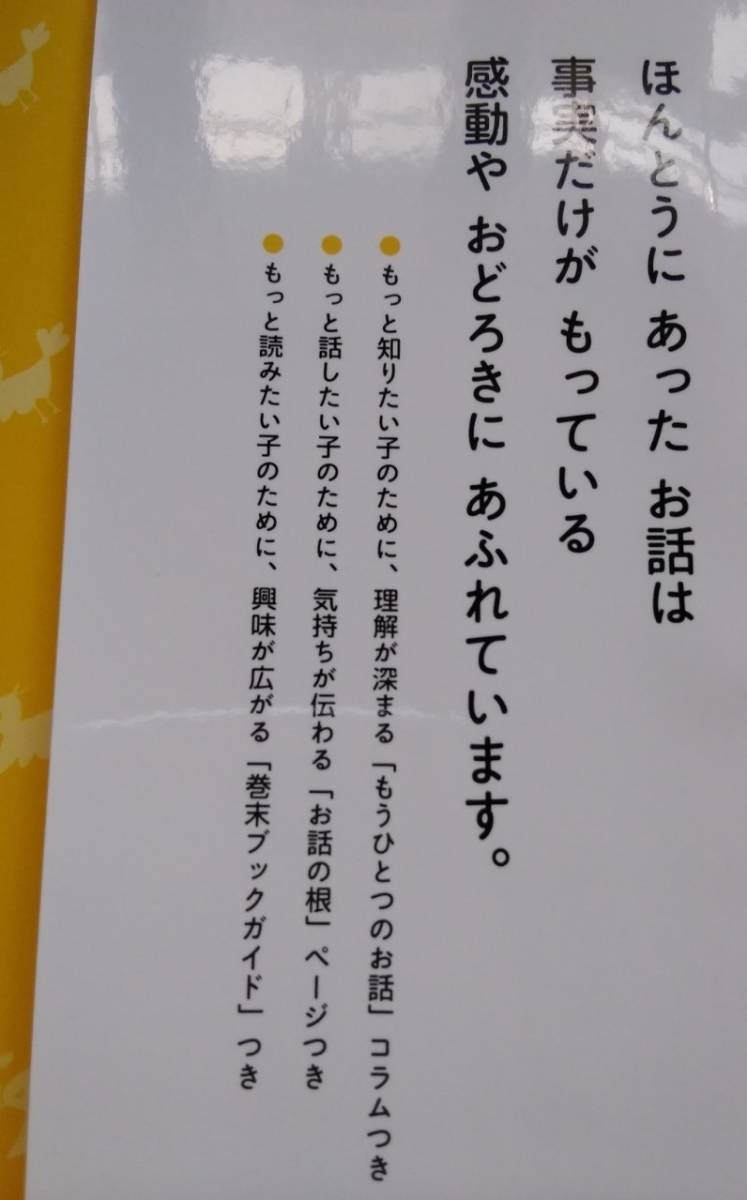 ほんとうに あった お話は
事実だけが もっている
感動や おどろきに あふれています。
●もっと知りたい子のために、理解が深まる「もうひとつのお話」コラムつき
●もっと話したい子のために、気持ちが伝わる「お話の根」ページつき
●もっと読みたい子のために、興味が広がる「巻末ブックガイド」つき